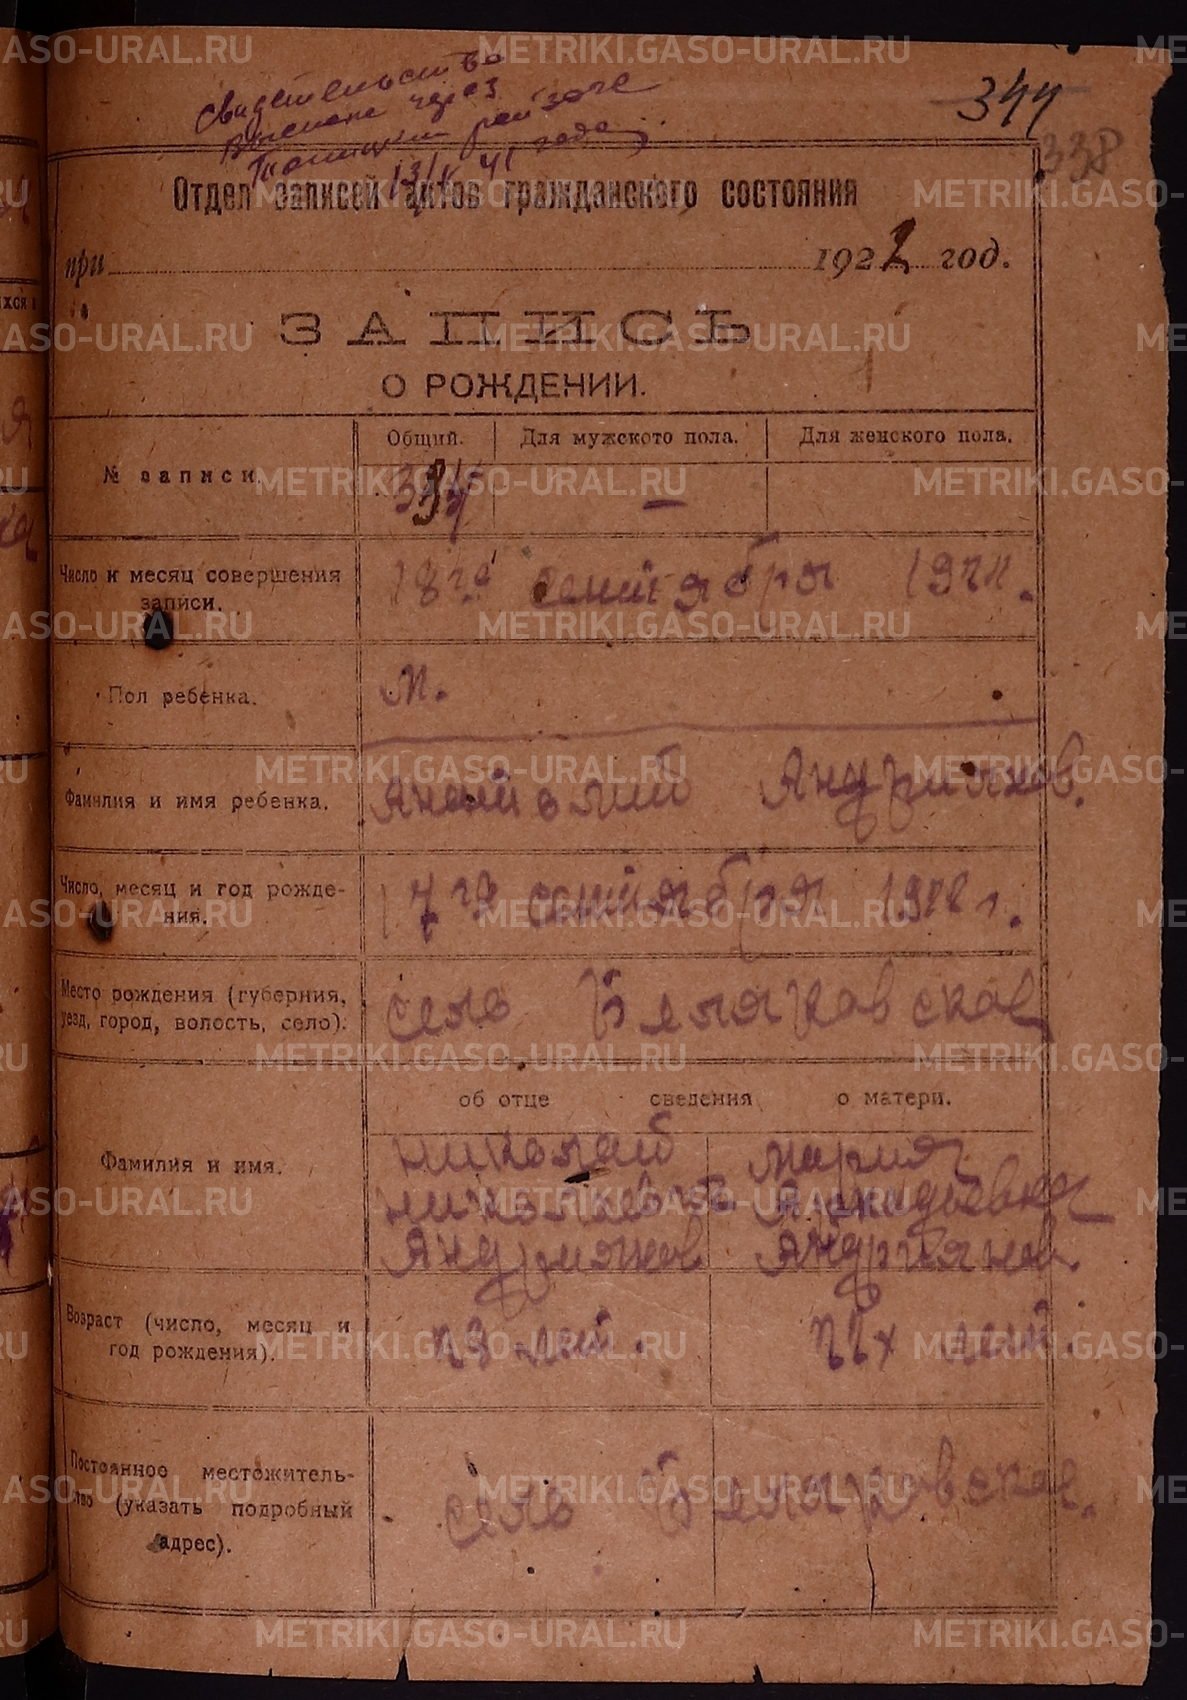 Свидетельство
через
13/V 41 года
344
338
Отдел записей актов гражданского состояния
при 1922 год.
ЗАПИСЬ
О РОЖДЕНИИ.
№ записи. Общий. Для мужского пола. Для женского пола.
—
Число и месяц совершения записи. 18го сентября
Пол ребенка. м.
Фамилия и имя ребенка. Анатолий Андриянов.
Число, месяц и год рожде-
ния. 17го сентября
Место рождения (губерния,
уезд, город, волость, село). село Беляковское
об отце сведения о матери.
Фамилия и имя. Николай Мария
Николаевич Аркадьевна
Андриянов Андриянов.
Возраст (число, месяц и
год рождения). 23 лет. 22х лет.
Постоянное местожитель-
ство (указать подробный
адрес). село Беляковское.
METRIKI.GASO-URAL.RU